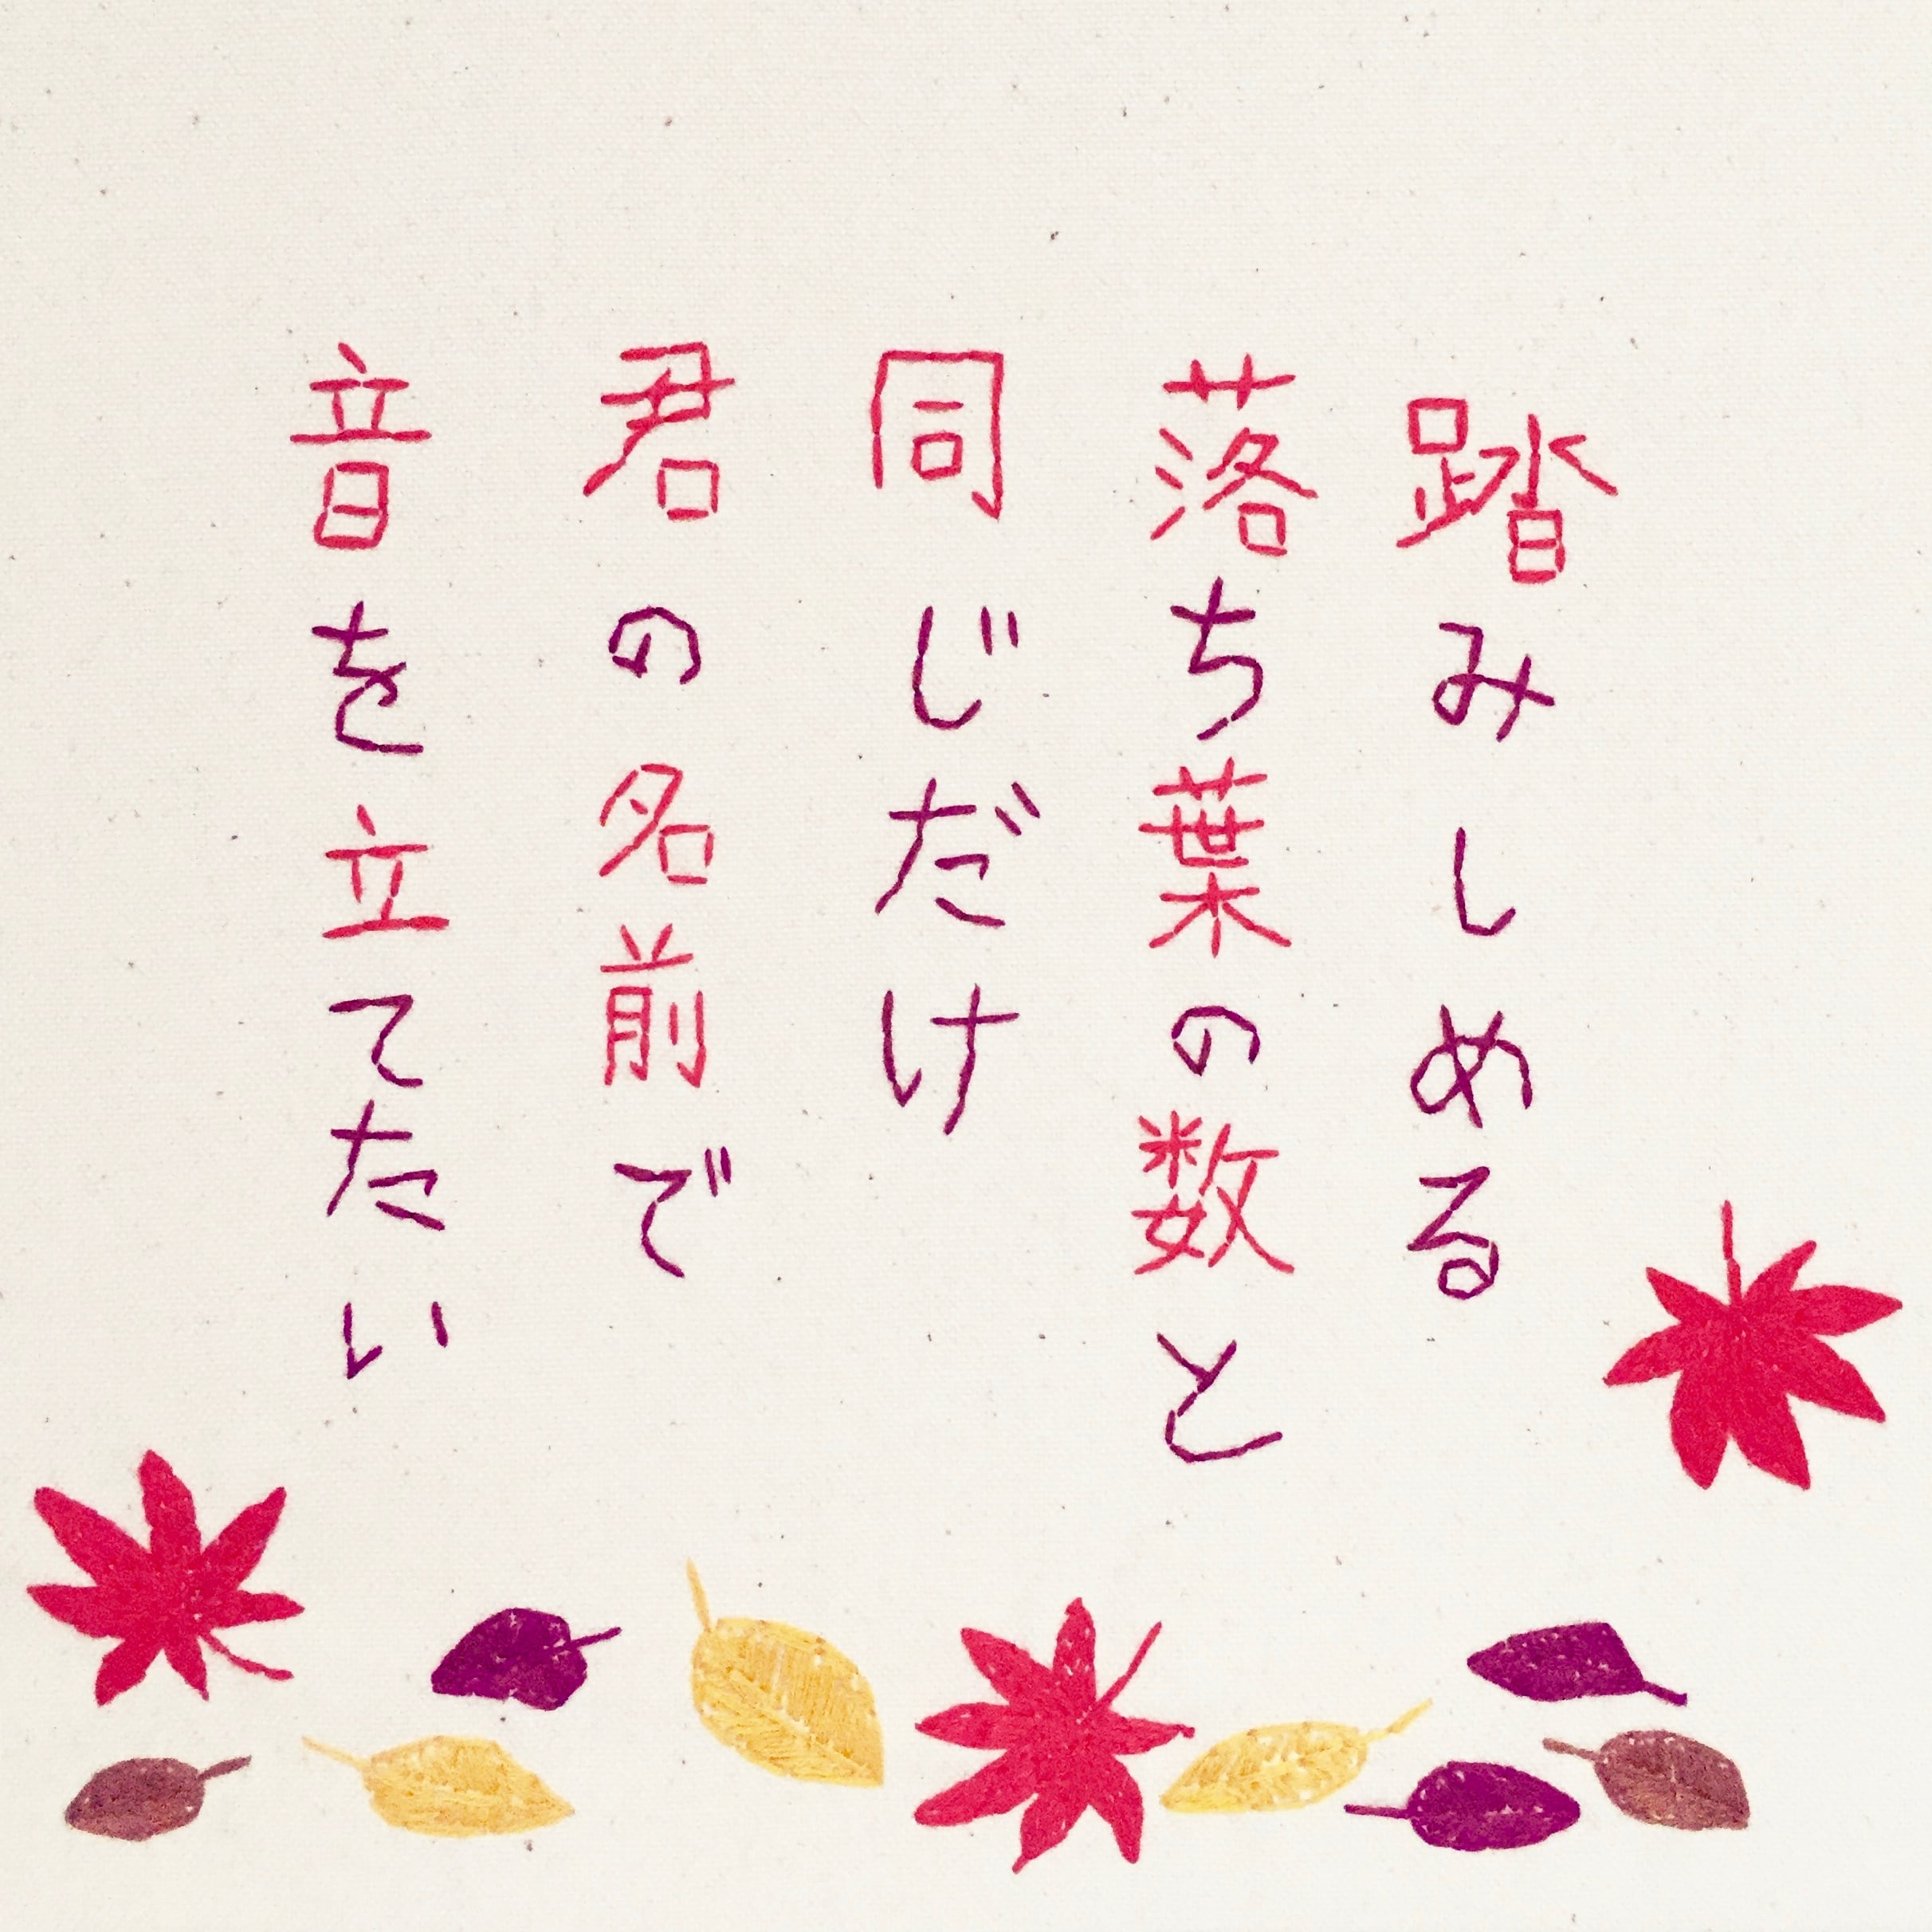 踏みしめる
落ち葉の数と
同じだけ
君の名前で
音を立てたい